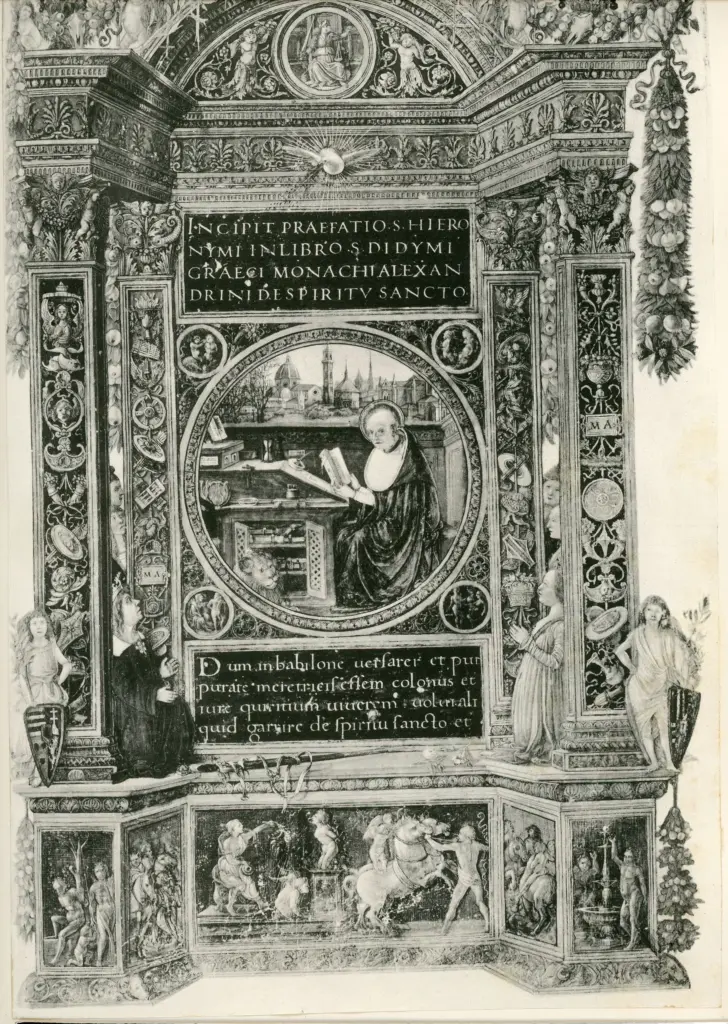 INCIPIT PRAEFATIO·S·HIERO
NYMI IN LIBRO·S·DIDYMI
GRAECI MONACHI ALEXAN
DRINI DE SPIRITV SANCTO
M A
M A
Dum in babilone uersarer et pur
purate meretricis essem colonus et
iure quiritium uiuerem : uolui ali
quid garrire de spiritu sancto et